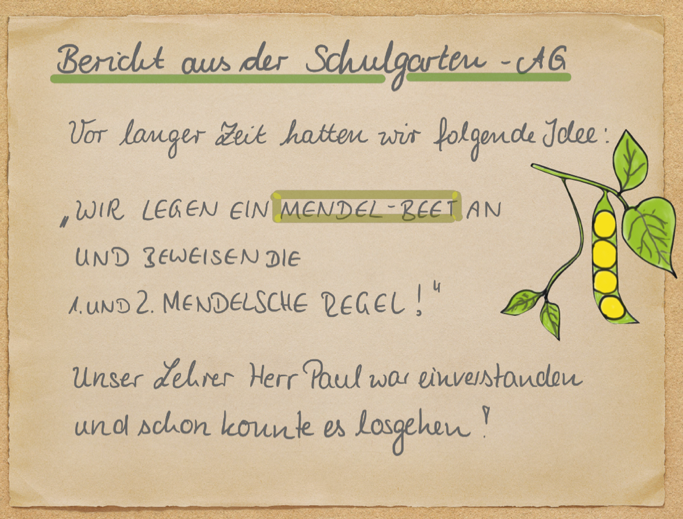 Bericht aus der Schulgarten-AG
Vor langer Zeit hatten wir folgende Idee:
„WIR LEGEN EIN MENDEL-BEET AN
UND BEWEISEN DIE
1. UND 2. MENDELSCHE REGEL!“
Unser Lehrer Herr Paul war einverstanden
und schon konnte es losgehen!